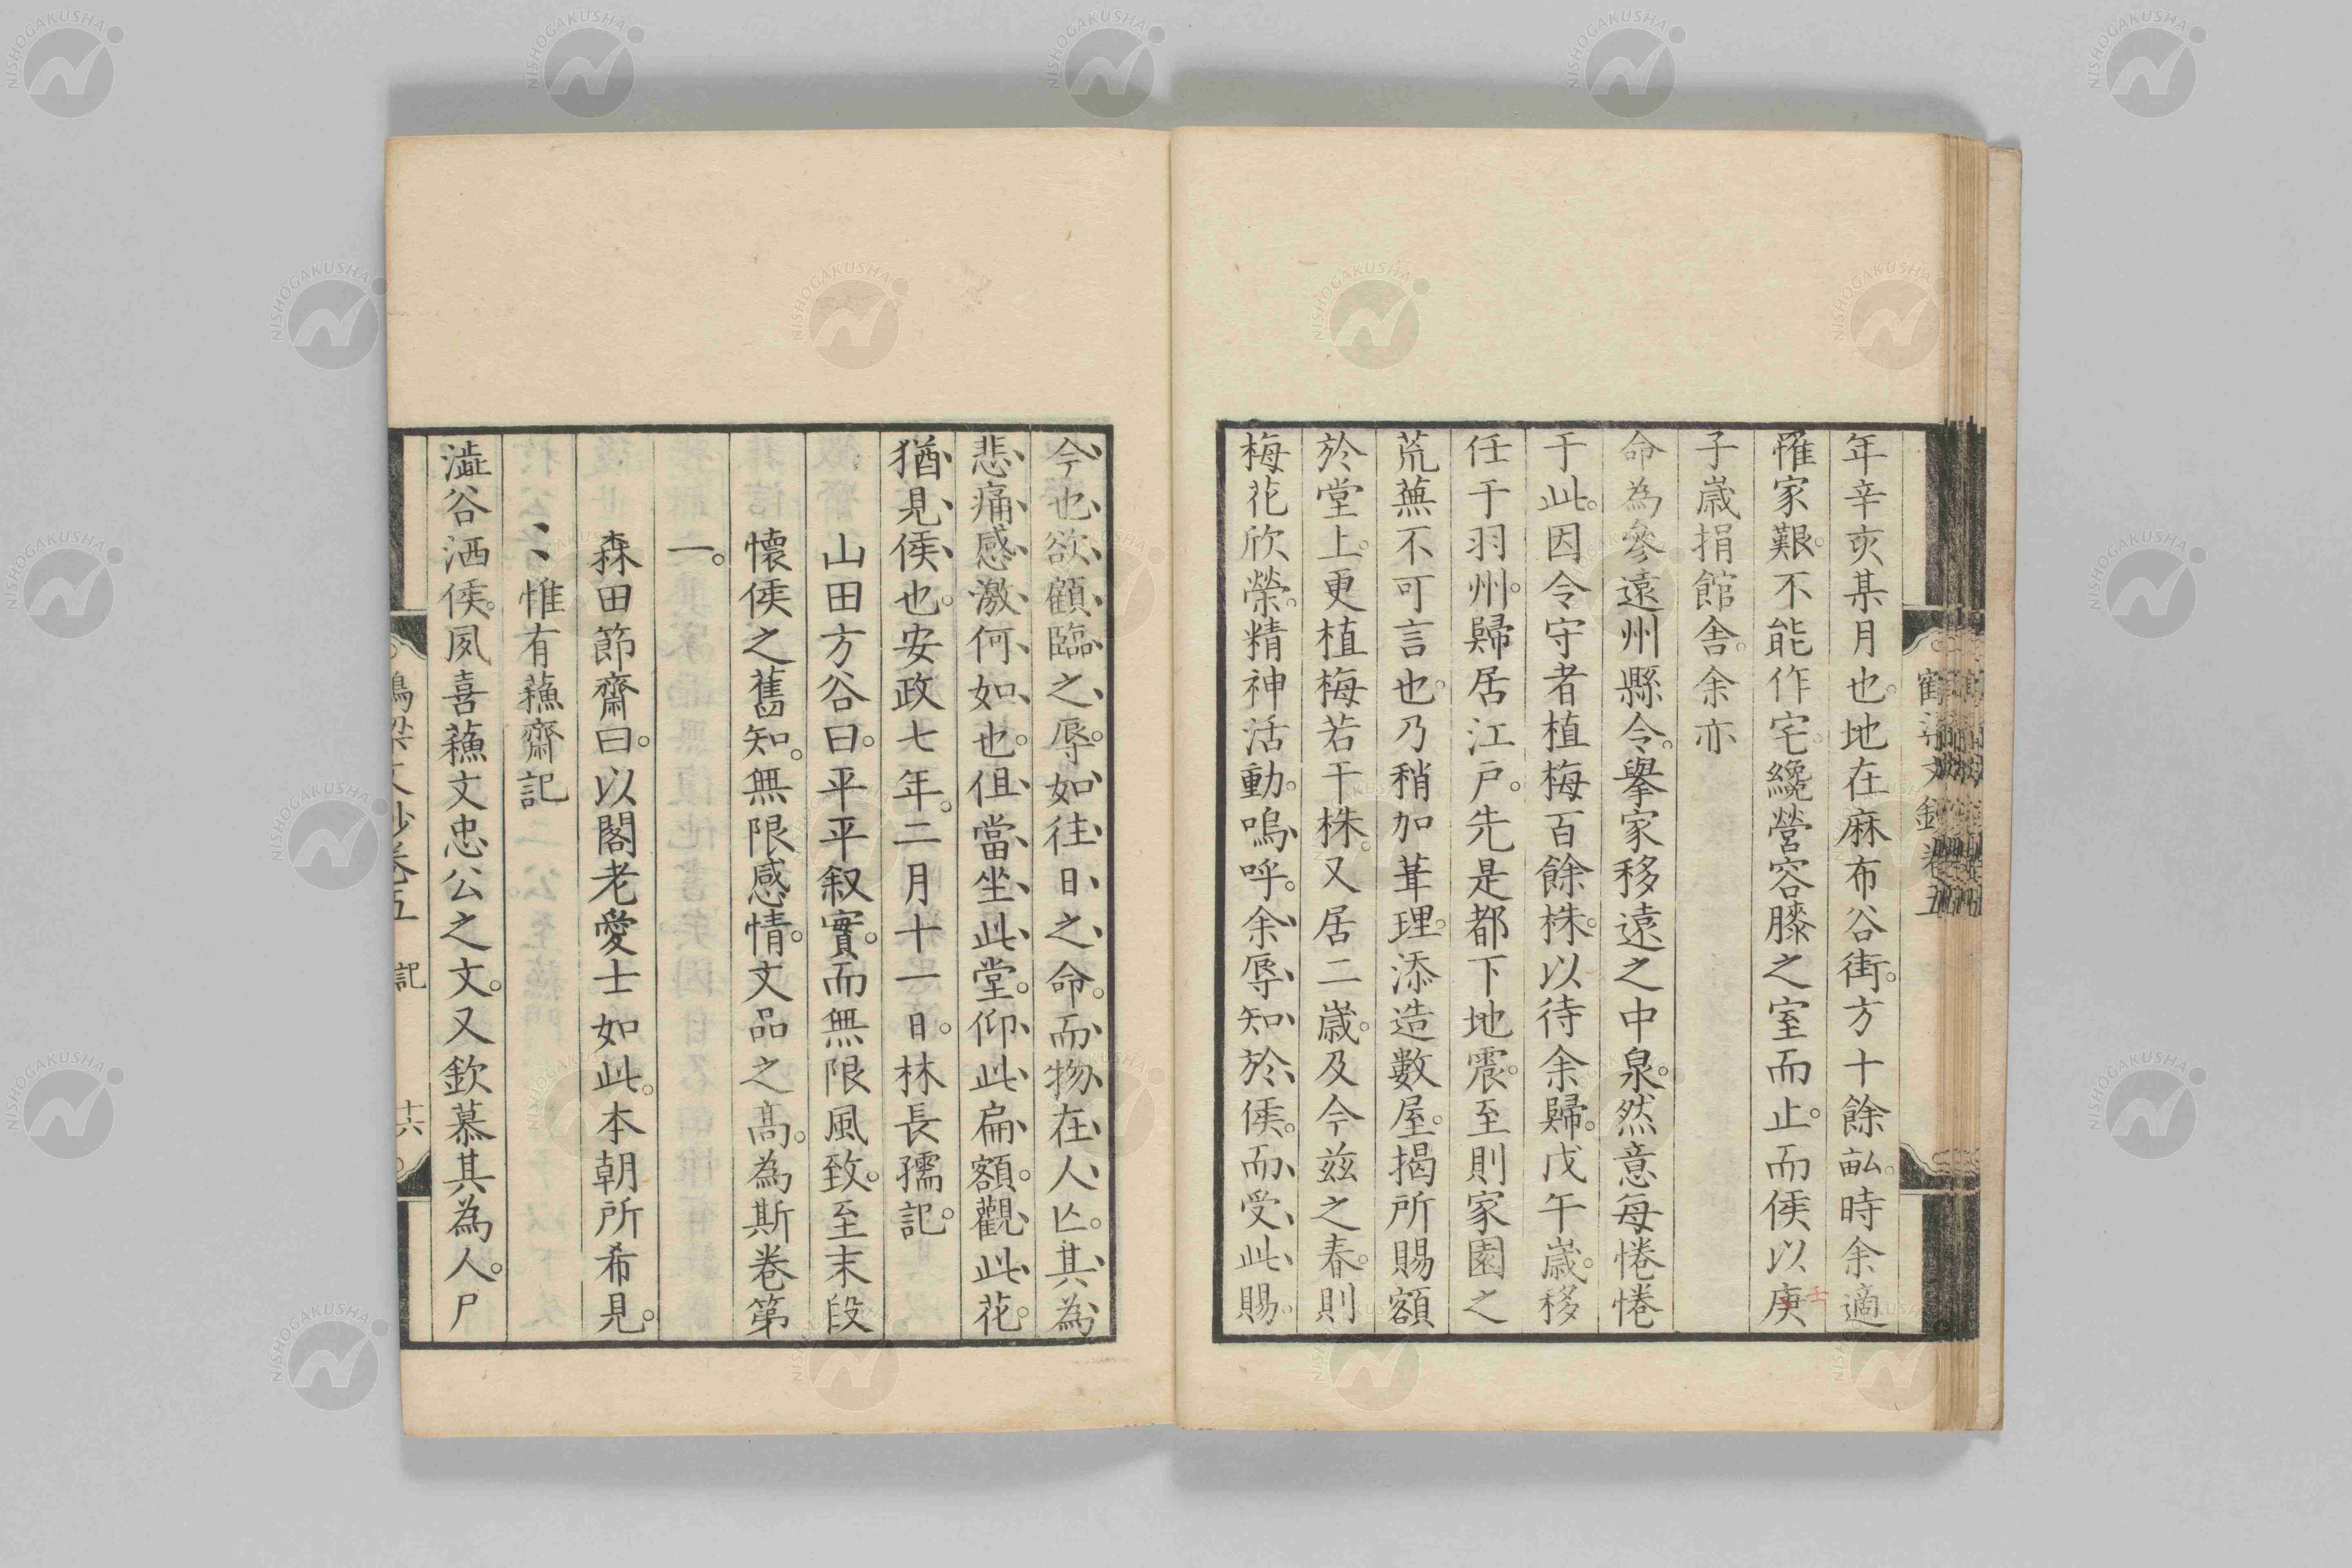 年辛亥某月也。地在麻布谷街。方十餘畝。時余適
罹家艱。不能作宅。纔營容膝之室而止。而侯以庚
壬
子歲捐館舍。余亦
命為參遠州縣令。擧家移遠之中泉。然意每惓惓
于此。因令守者植梅百餘株。以待余歸。戊午歲。移
任于羽州。歸居江戶。先是都下地震。至則家園之
荒蕪不可言也。乃稍加葺理。添造數屋。揭所賜額
於堂上。更植梅若干株。又居二歲。及今茲之春。則
梅花欣榮。精神活動。嗚呼。余辱知於侯。而受此賜。
今也欲顧臨之辱。如往日之命。而物在人亡。其為
悲痛感激何如也。但當坐此堂。仰此扁額。觀此花。
猶見侯也。安政七年。二月十一日。林長孺記。
山田方谷曰。平平叙實。而無限風致。至末段
懷侯之舊知。無限感情。文品之高。為斯卷第
一。
森田節齋曰。以閣老愛士如此。本朝所希見。
惟有蘓齋記
澁谷洒侯。夙喜蘓文忠公之文。又欽慕其為人。尸
鶴梁文鈔卷五 記 十六